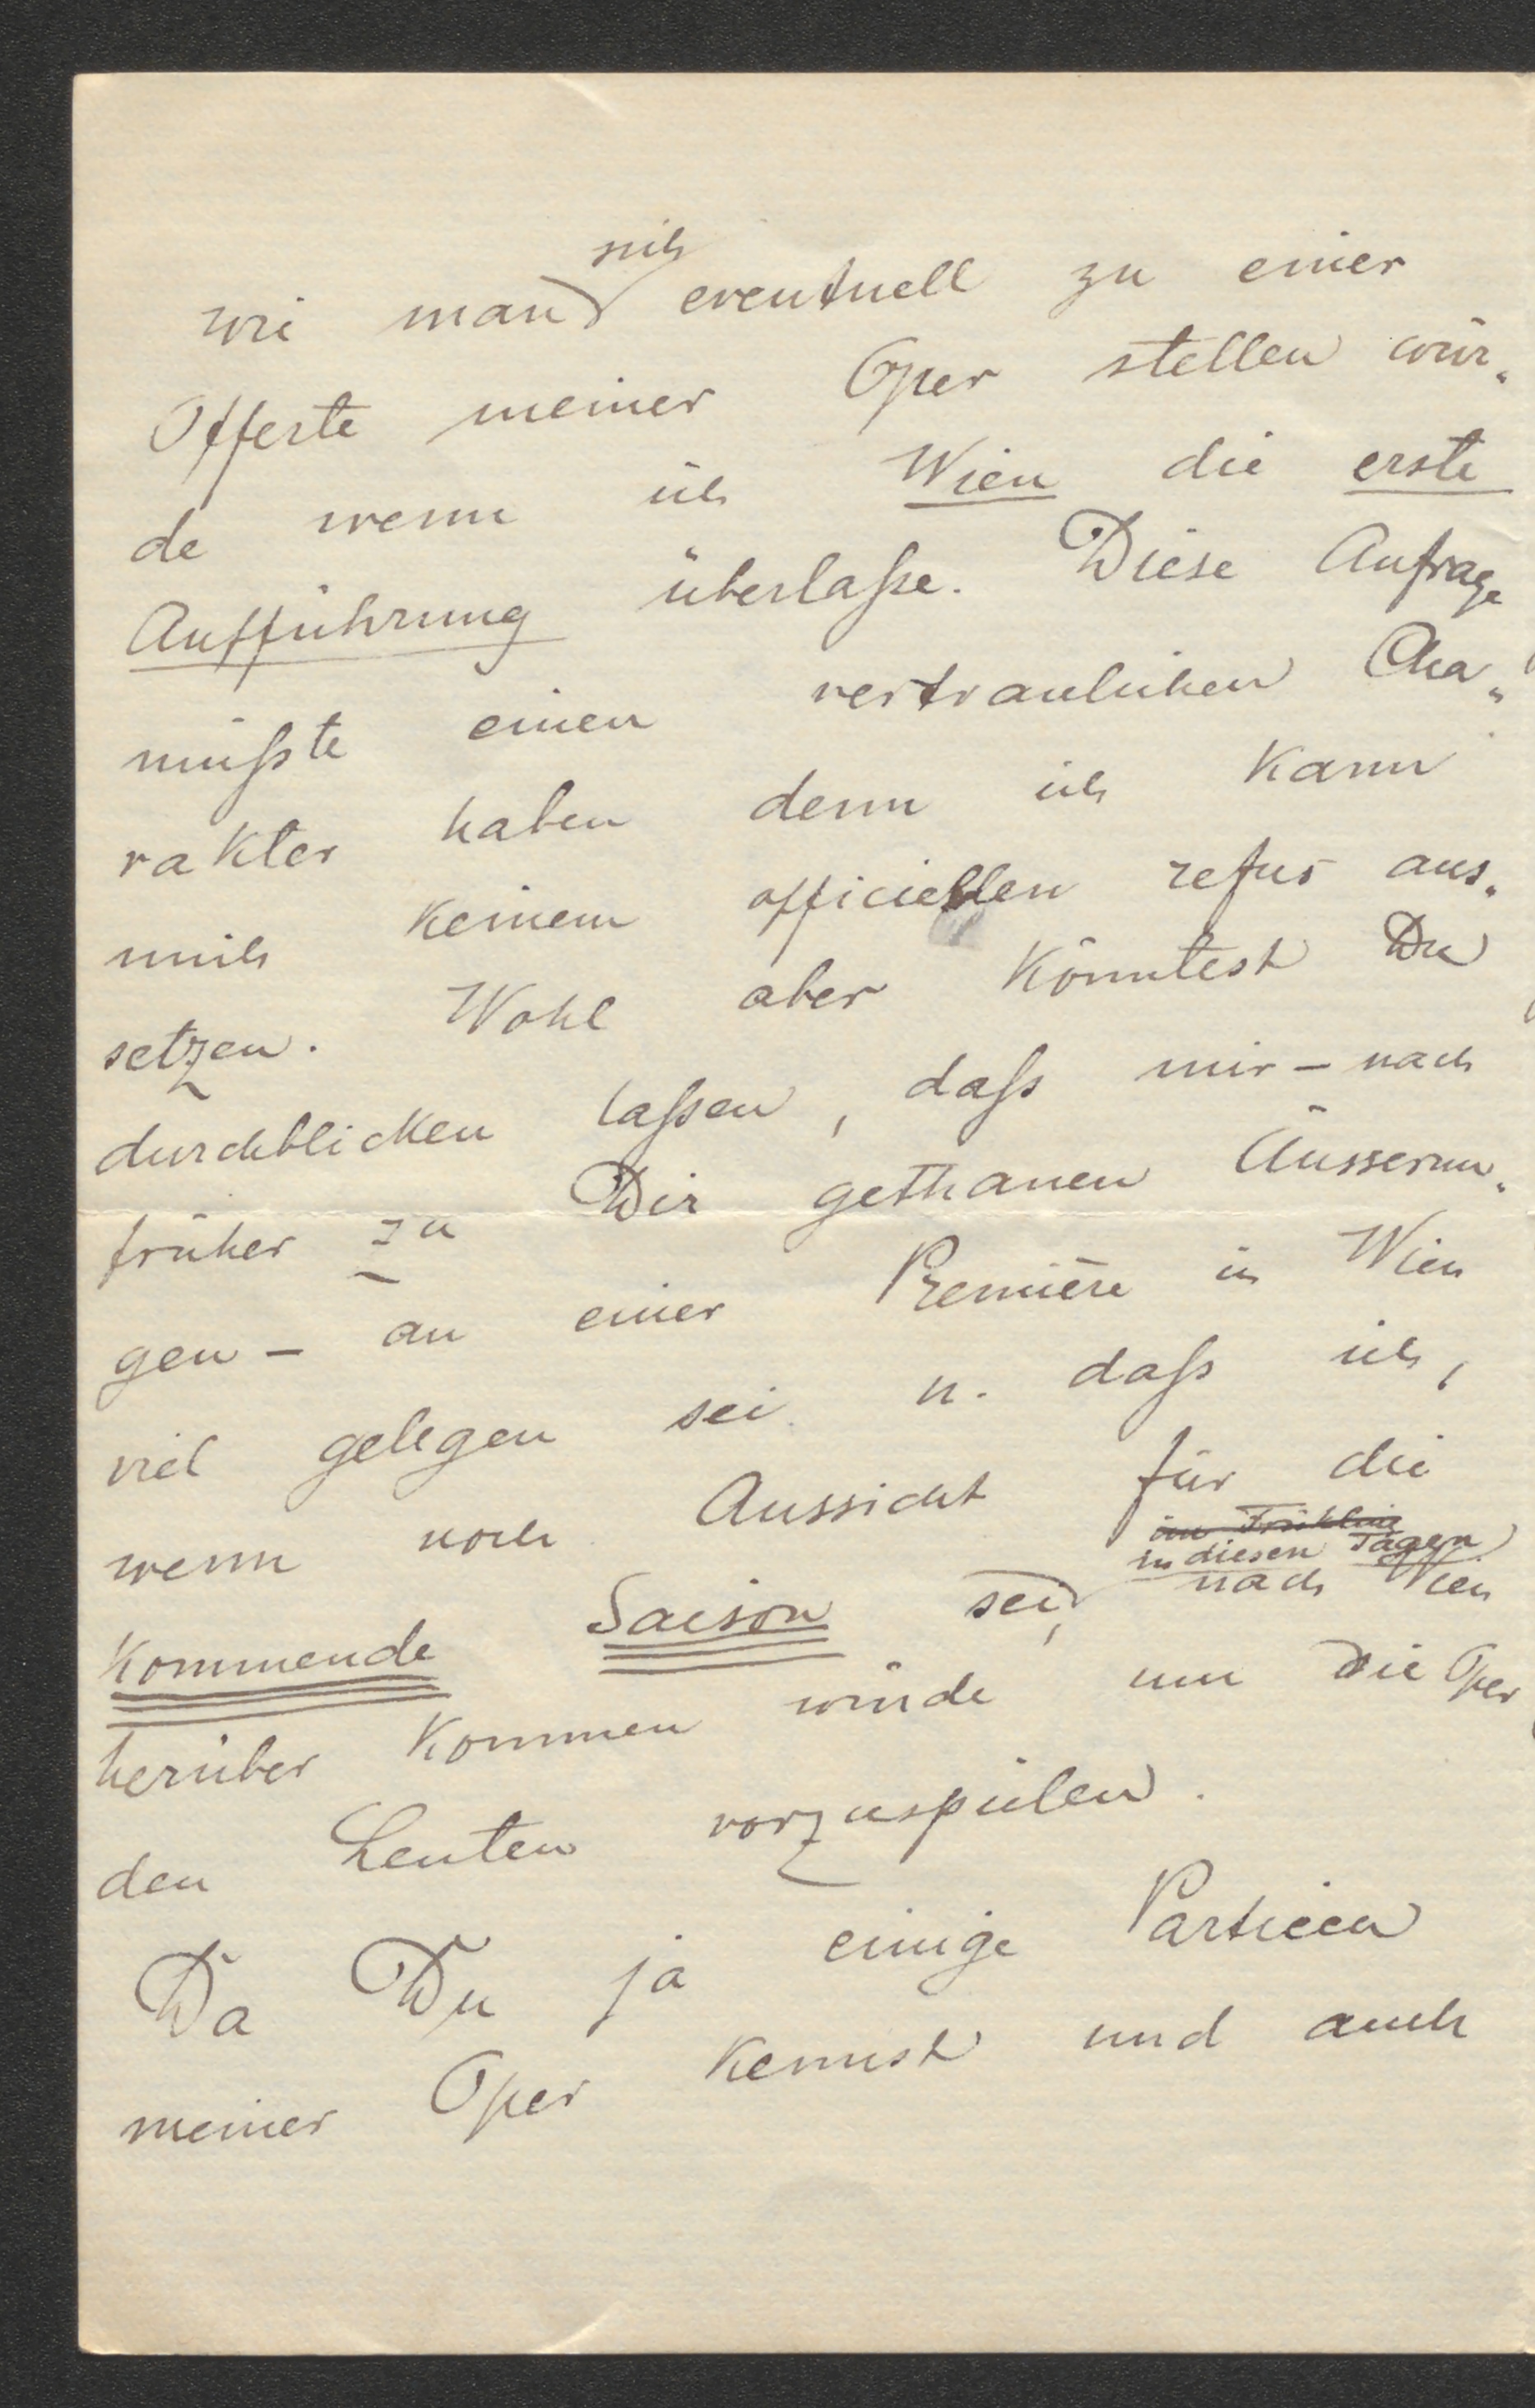 wie man sich eventuell zu einer
Offerte meiner Oper stellen wür-
de wenn ich Wien die erste
Aufführung überlaße. Diese Anfrage
müßte einen vertraulichen Cha-
rakter haben denn ich kann
mich keinem officiellen refus aus-
setzen. Wohl aber könntest Du
durchblicken laßen, daß mir – nach
früher zu Dir gethanen Äusserun-
gen – an einer Première in Wien
viel gelegen sei u. daß ich,
wenn noch Aussicht für die
im Frühling
in diesen Tagen
kommende Saison sei, nach Wien
herüber kommen würde um die Oper
den Leuten vorzuspielen.
Da Du ja einige Partieen
meiner Oper kennst und auch